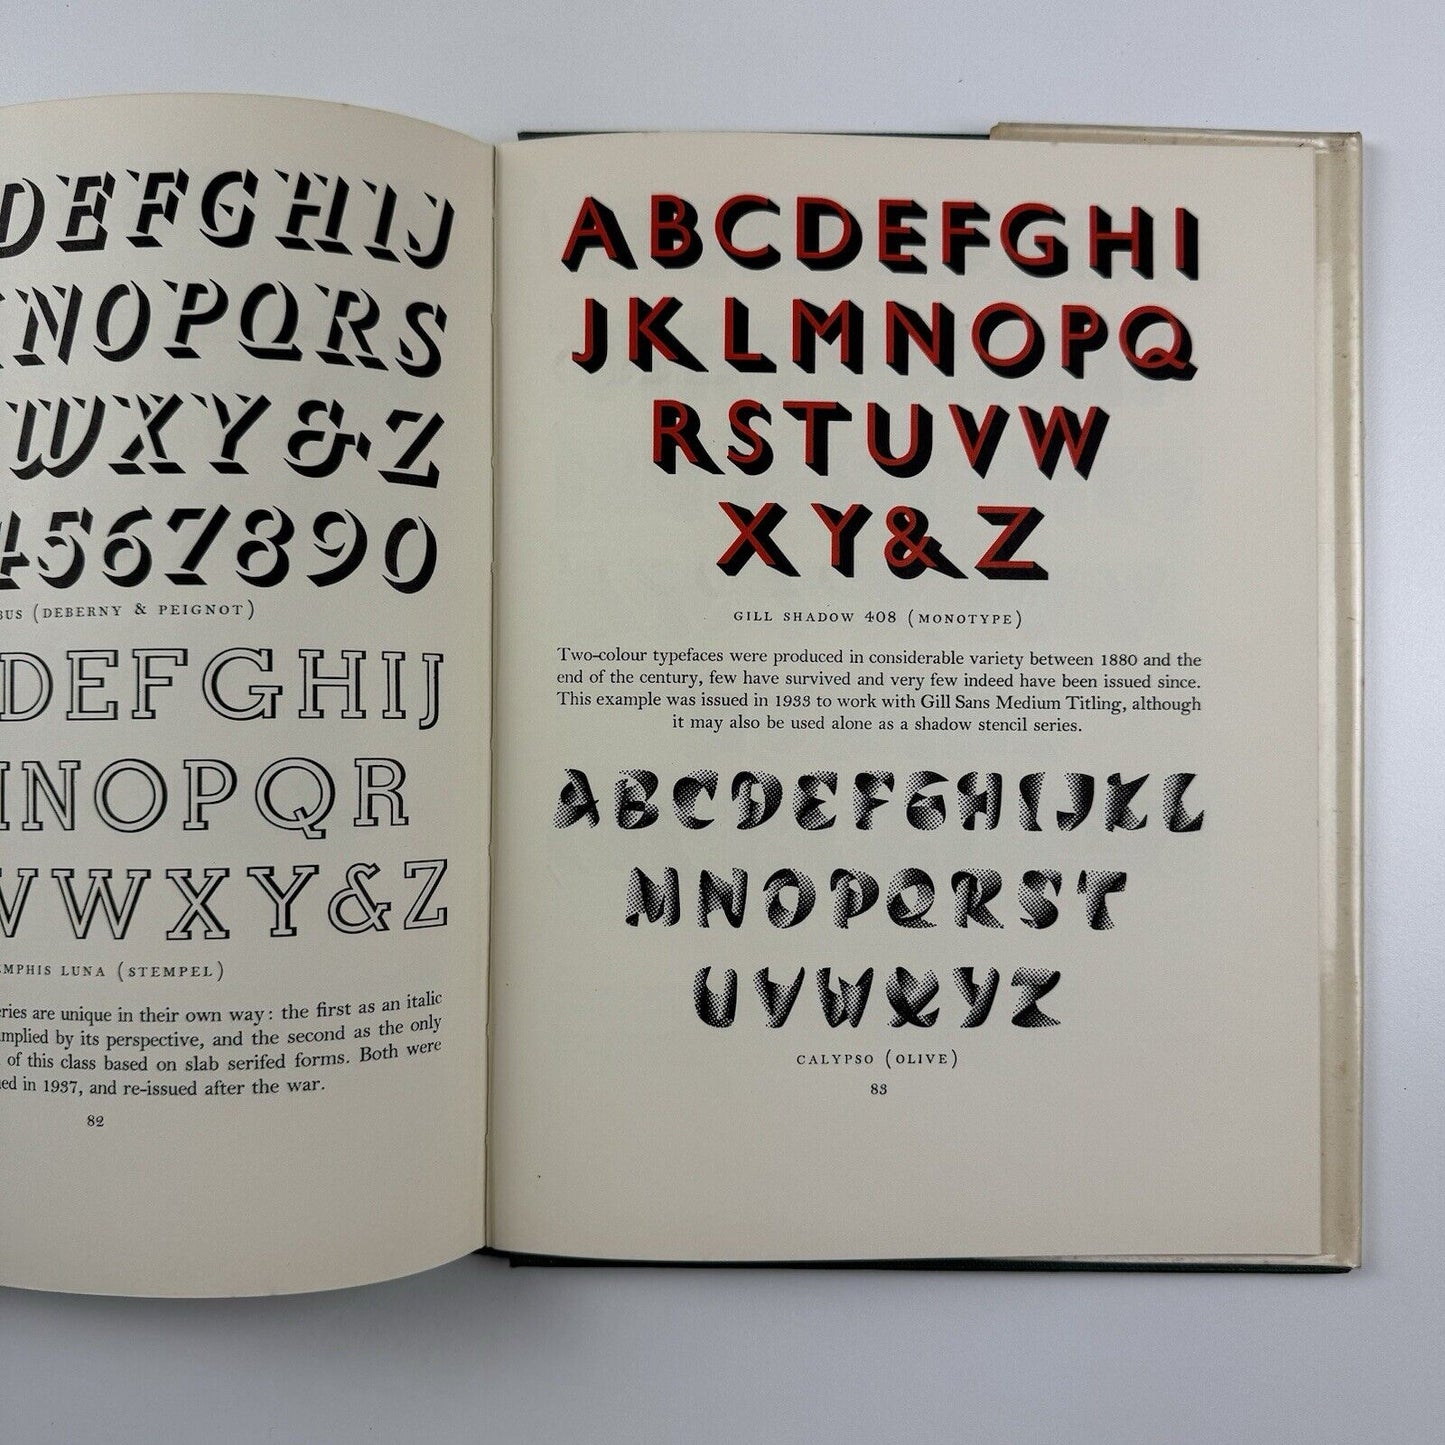 DEFGHIJ
NOPQRS
WXYZ&Z
4567890
(DEBERNY & PEIGNOT)
DEFGHIJ
NOPQR
VWXY&Z
LUNA (STEMPEL)
are unique in their own way: the first as an italic
by its perspective, and the second as the only
of this class based on slab serifed forms. Both were
in 1937, and re-issued after the war.
82
ABCDEFGHI
JKLMNOPQ
RSTUVW
XY&Z
GILL SHADOW 408 (MONOTYPE)
Two-colour typefaces were produced in considerable variety between 1880 and the
end of the century, few have survived and very few indeed have been issued since.
This example was issued in 1933 to work with Gill Sans Medium Titling, although
it may also be used alone as a shadow stencil series.
ABCDEFGHIJKL
MNOPQRST
UVWXYZ
CALYPSO (OLIVE)
83